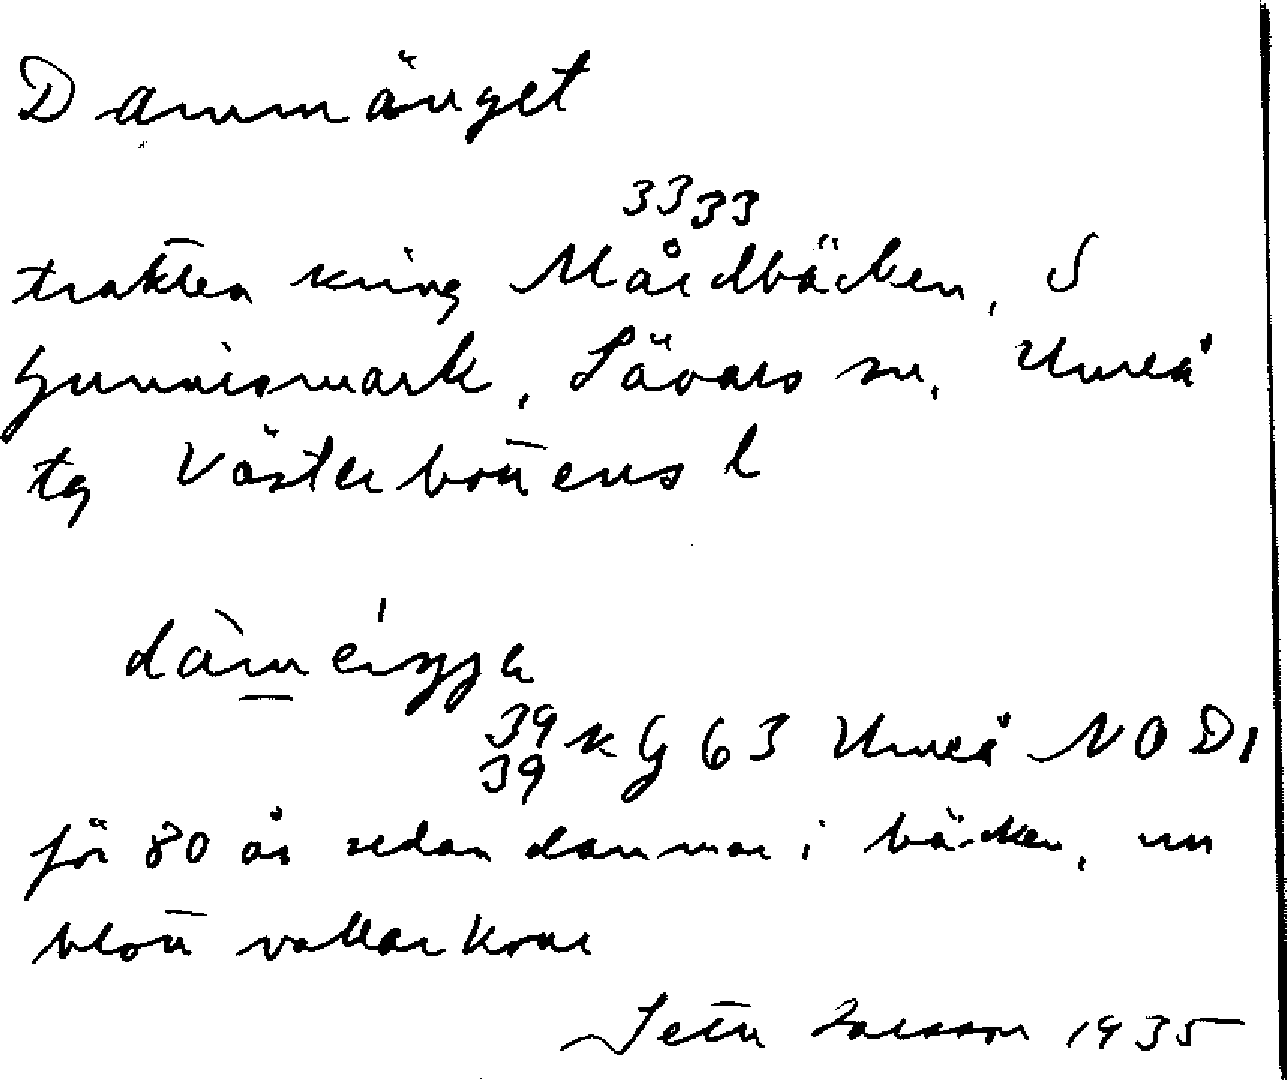 Dammänget
33 33
trakten kring Mårdbäcken, S
Gunnismark, Sävars sn, Umeå
tg Västerbottens l
39 k G 63 Umeå NO D1
39
för 80 år sedan dammar i bäcken, nu
blott vallar kvar
Larsson 1935